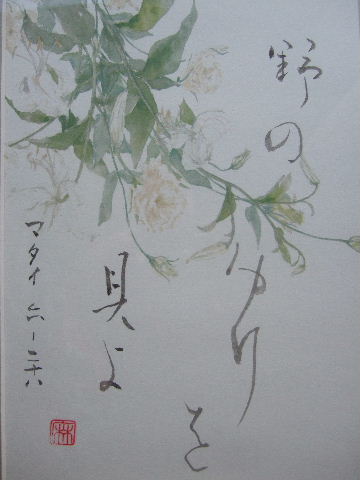 野の
ゆりを
見よ
マタイ六ー二八